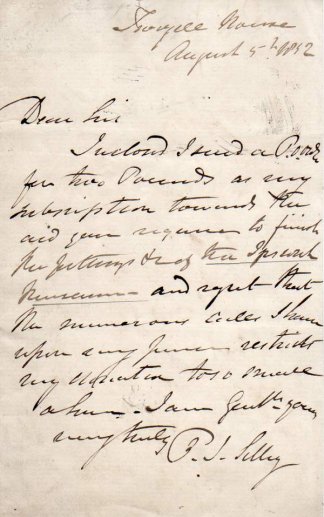 Twizell House
August 5th 1852
Dear Sir
Inclosed I send a P. order
for two Pounds as my
subscription towards the
aid you require to finish
the fittings &c of the Ipswich
Museum and regret that
the numerous calls I have
upon my purse restricts
my donation to so small
a sum. I am Gentn yours
very truly P. J. Selby